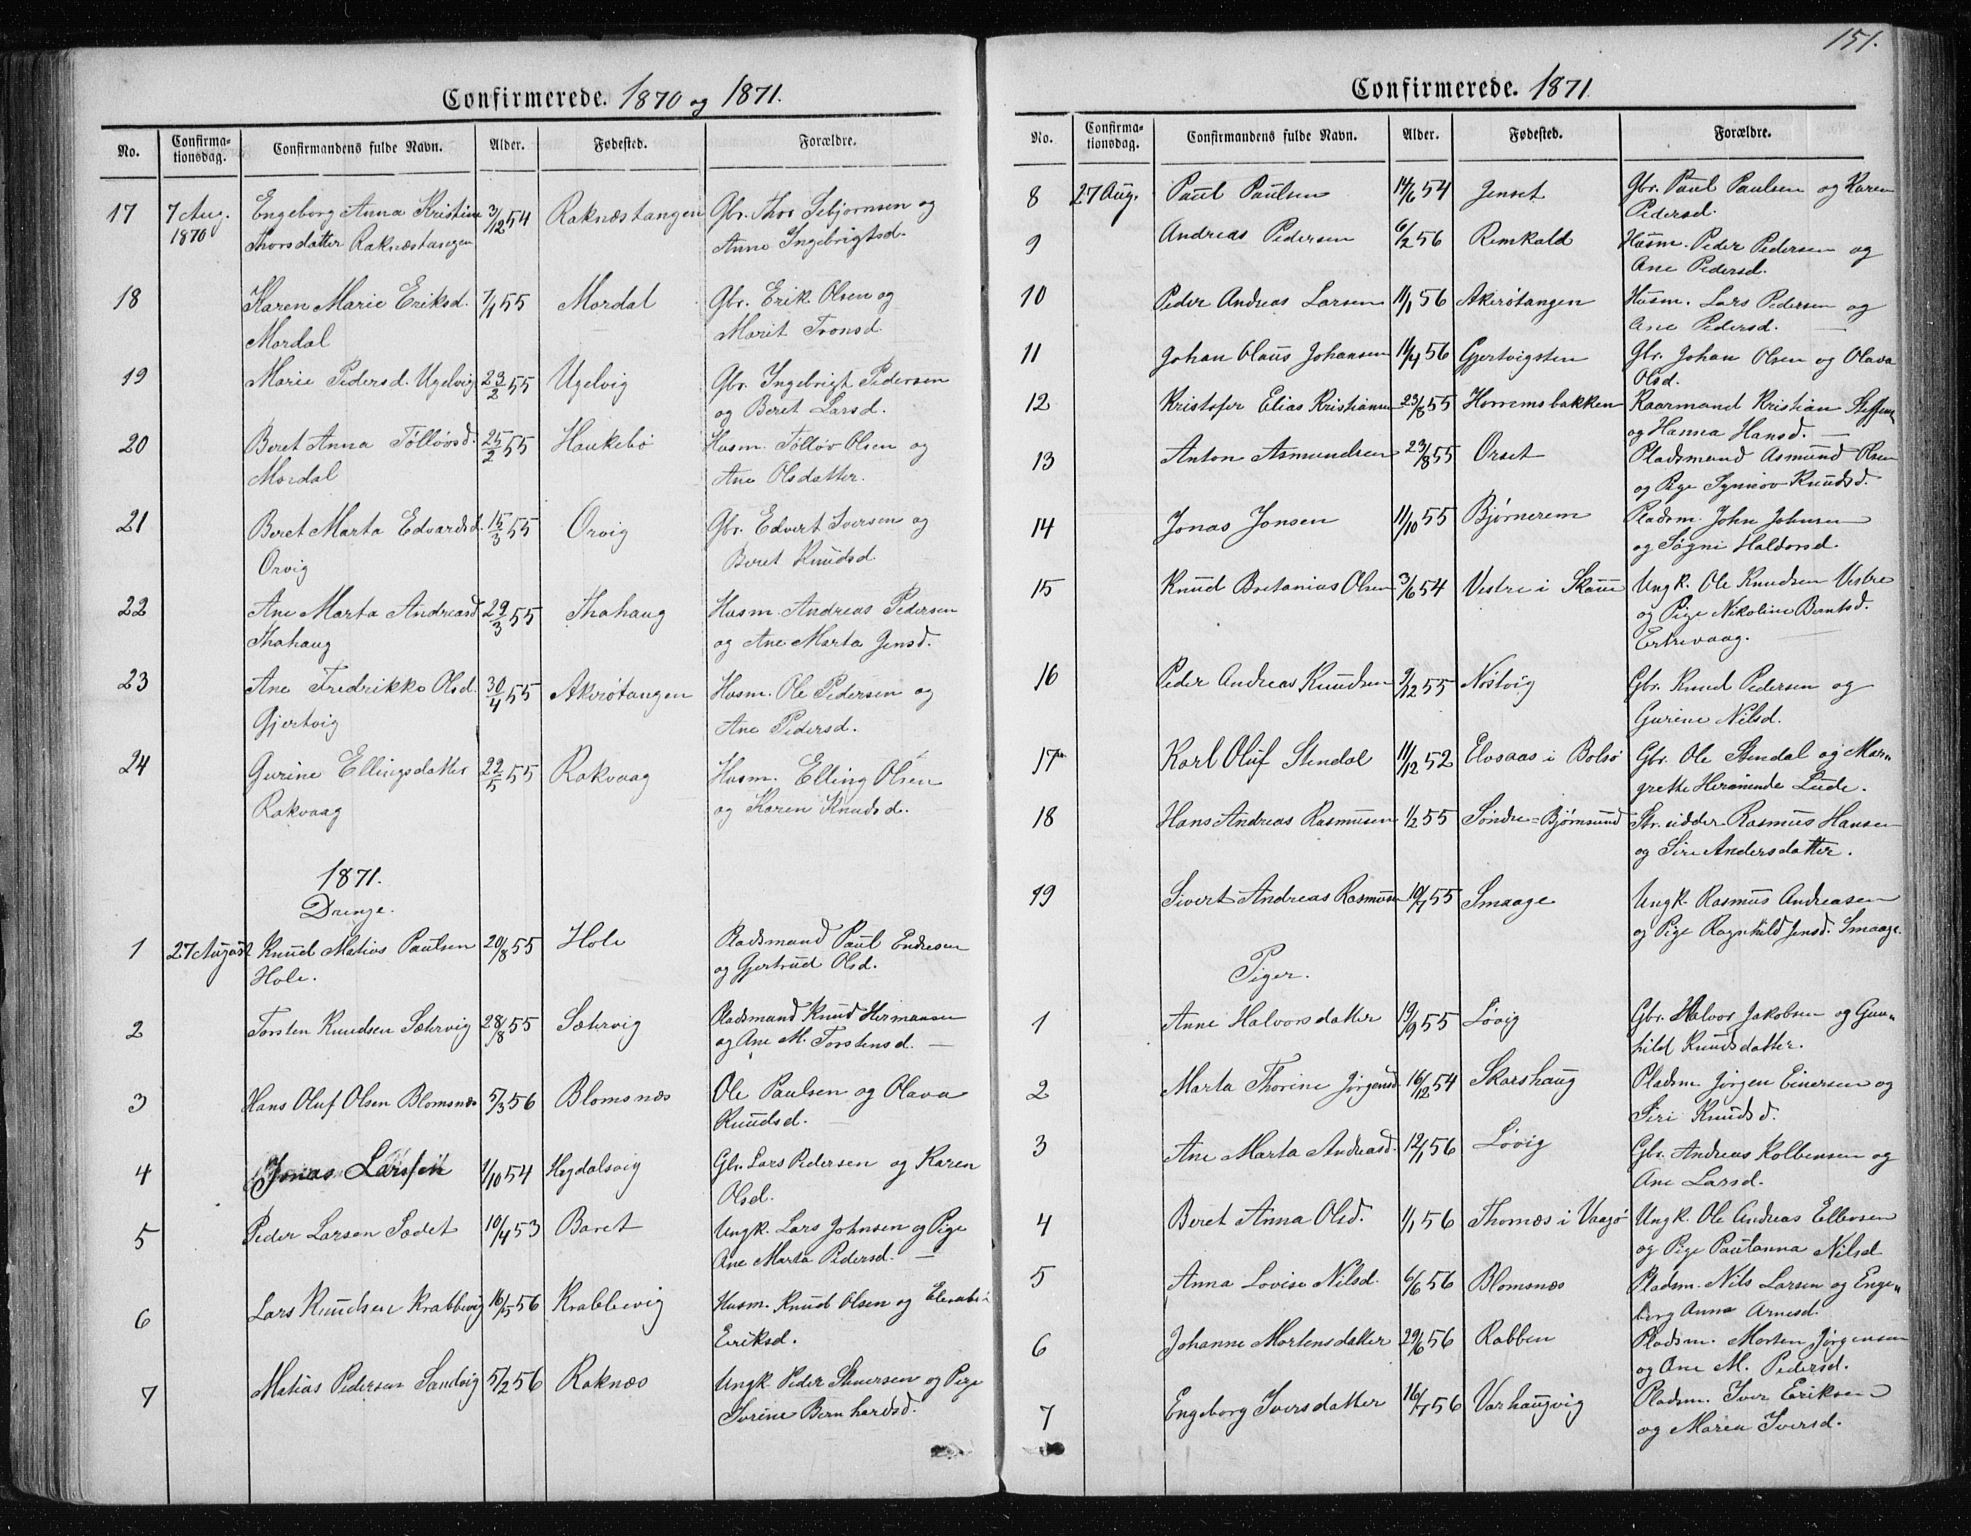 151.
Confirmerede. 1870 og 1871.
No. Confirma-tionsdag. Confirmandens fulde Navn. Alder. Fødested. Forældre.
17 7 Aug. 1870 Engeborg Anna Kristine 3/12 54 Raknæstangen Gbr. Thor Sebjornsen og
Thorsdatter Raknæstangen Anne Ingebrigtsd.
18 Karen Marie Eriksd. 7/1 55 Mordal Gbr. Erik Olsen og
Mordal Marit Tronsd.
19 Marie Pedersd. Ugelvig 23/2 55 Ugelvig Gbr. Ingebrigt Pedersen
og Beret Larsd.
20 Beret Anna Tølløvsd. 25/2 55 Haukebø Husm. Tølløv Olsen og
Mordal Ane Olsdatter.
21 Beret Marta Edvardsd. 15/3 55 Orvig Gbr. Edvert Iversen og
Orvig Beret Knudsd.
22 Ane Marta Andreasd. 29/3 55 Thahaug Husm. Andreas Pedersen
Thahaug og Ane Marta Jensd.
23 Ane Fredrikke Olsd. 30/4 55 Akerøtangen Husm. Ole Pedersen og
Gjertvig Ane Pedersd.
24 Gurine Ellingsdatter 22/5 55 Rakvaag Husm. Elling Olsen
Rakvaag og Karen Knudsd.
1871.
Drenge.
1 27 August Knud Matias Paulsen 20/8 55 Hole Pladsmand Paul Endresen
Hole. og Gjertrud Olsd.
2 Torsten Knudsen Sætervig 28/8 55 Sætervig Pladsmand Knud Hermansen
og Ane M. Torstensd. —
3 Hans Oluf Olsen Blomsnæs 5/3 56 Blomsnæs Ole Paulsen og Olava
Knudsd.
4 Jonas Larssen 1/10 54 Hegdalsvig Gbr. Lars Pedersen og Karen
Olsd.
5 Peder Larsen Sødet 10/4 53 Baret Ungk. Lars Johnsen og Pige
Ane Marta Pedersd. —
6 Lars Knudsen Krabbevig 16/5 56 Krabbevig Husm. Knud Olsen og
Eriksd.
7 Matias Pedersen Sandvig 5/2 56 Raknæs Ungk. Peder Siversen og Pige
Sorine Bernhardsd.
Confirmerede. 1871
No. Confirma-tionsdag. Confirmandens fulde Navn. Alder. Fødested. Forældre.
8 27 Aug. Paul Paulsen 14/6 54 Jenset Gbr. Paul Paulsen og Karen
Pedersd.
9 Andreas Pedersen 6/2 56 Remkald Husm. Peder Pedersen og
Ane Pedersd.
10 Peder Andreas Larsen 11/1 56 Akerøtangen Husm. Lars Pedersen og
Ane Pedersd. —
11 Johan Olaus Johansen 11/4 56 Gjertvigsten Gbr. Johan Olsen og Olava
Olsd.
12 Kristofer Elias Kristiansen 23/8 55 Horremsbakken Kaarmand Kristian Steffens
og Hanna Hansd. —
13 Anton Asmundsen 23/8 55 Orset Pladsmand Asmund Olsen
og Pige Synnøv Knudsd.
14 Jonas Jonsen 11/10 55 Bjørnerem Pladsm. John Johnsen
og Søgni Haldorsd.
15 Knud Bretanius Olsen 3/6 54 Vestre i Skaue Ungk. Ole Knudsen Vestre
og Pige Nikoline Berntsd.
Ertrevaag. —
16 Peder Andreas Knudsen 9/12 55 Nøstvig Gbr. Knud Pedersen og
Gurine Nilsd.
17 Karl Oluf Stendal 11/12 52 Elvsaas i Bolsø Gbr. Ole Stendal og Mar-
grethe Heronende Lude.
18 Hans Andreas Rasmusen 1/2 55 Søndre-Bjørnsund Str. sidder Rasmus Hansen
og Siri Andersdatter.
19 Sivert Andreas Rasmusen 10/7 55 Smaage Ungk. Rasmus Andreasen
og Pige Ragnhild Jensd. Smaage.
Piger.
1 Anne Halvorsdatter 19/9 55 Løvig Gbr. Halvor Jakobsen og Gun-
hild Knudsdatter.
2 Marta Thorine Jørgensd. 16/12 54 Skarshaug Pladsm. Jørgen Einersen og
Siri Knudsd.
3 Ane Marta Andreasd. 12/1 56 Løvig Gbr. Andreas Kolbensen og
Ane Larsd.
4 Beret Anna Olsd. 1/1 56 Thomæs i Vaagø Ungk. Ole Andreas Ellevsen
og Pige Paulanna Nilsd
5 Anna Lovise Nilsd. 6/6 56 Blomsnæs Pladsm. Nils Larsen og Enge-
borg Anna Arnesd.
6 Johanne Mortensdatter 29/6 56 Rabben Pladsm. Morten Jørgensen
og Ane M. Pedersd.
7 Engeborg Iversdatter 16/7 56 Varhaugvig Pladsm. Iver Eriksen
og Maren Iversd.